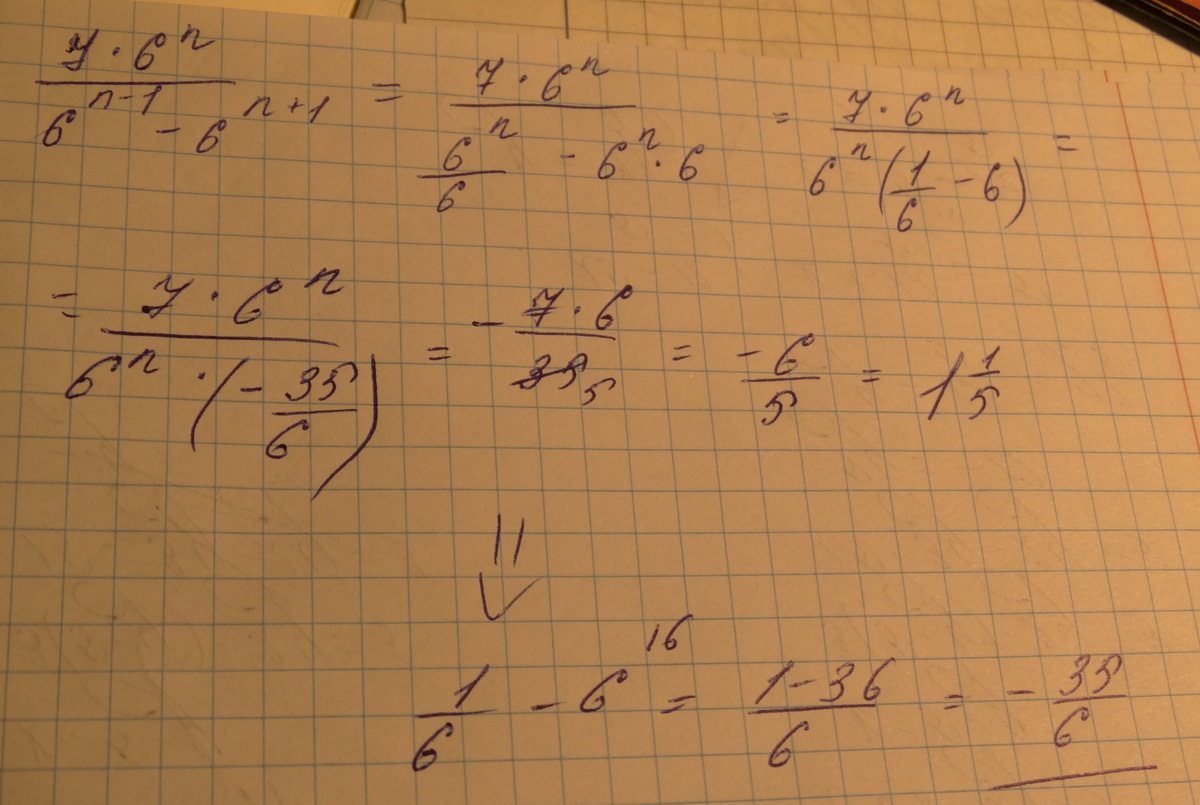 7·6^n / (6^(n-1) - 6^(n+1)) = 7·6^n / (6^n/6 - 6^n·6) = 7·6^n / (6^n(1/6 - 6)) =
= 7·6^n / (6^n·(-35/6)) = - 7·6 / 35 5 = -6/5 = 1 1/5
⇓
1/6 - 6 ^16 = (1-36)/6 = - 35/6